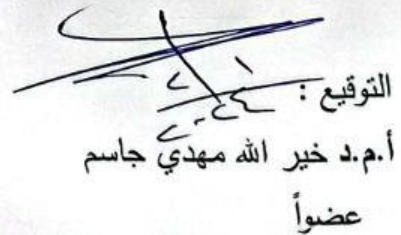 التوقيع :
أ.م.د خير الله مهدي جاسم
عضواً